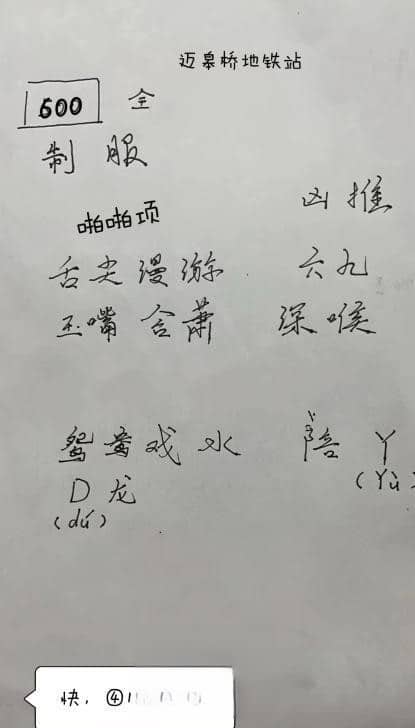 迈皋桥地铁站
600 全
制服
啪啪项
凶推
舌尖漫游 六九
玉嘴含萧 深喉
鸳鸯戏水 陪 丫
D龙 (Yù
(dú)
快,④1